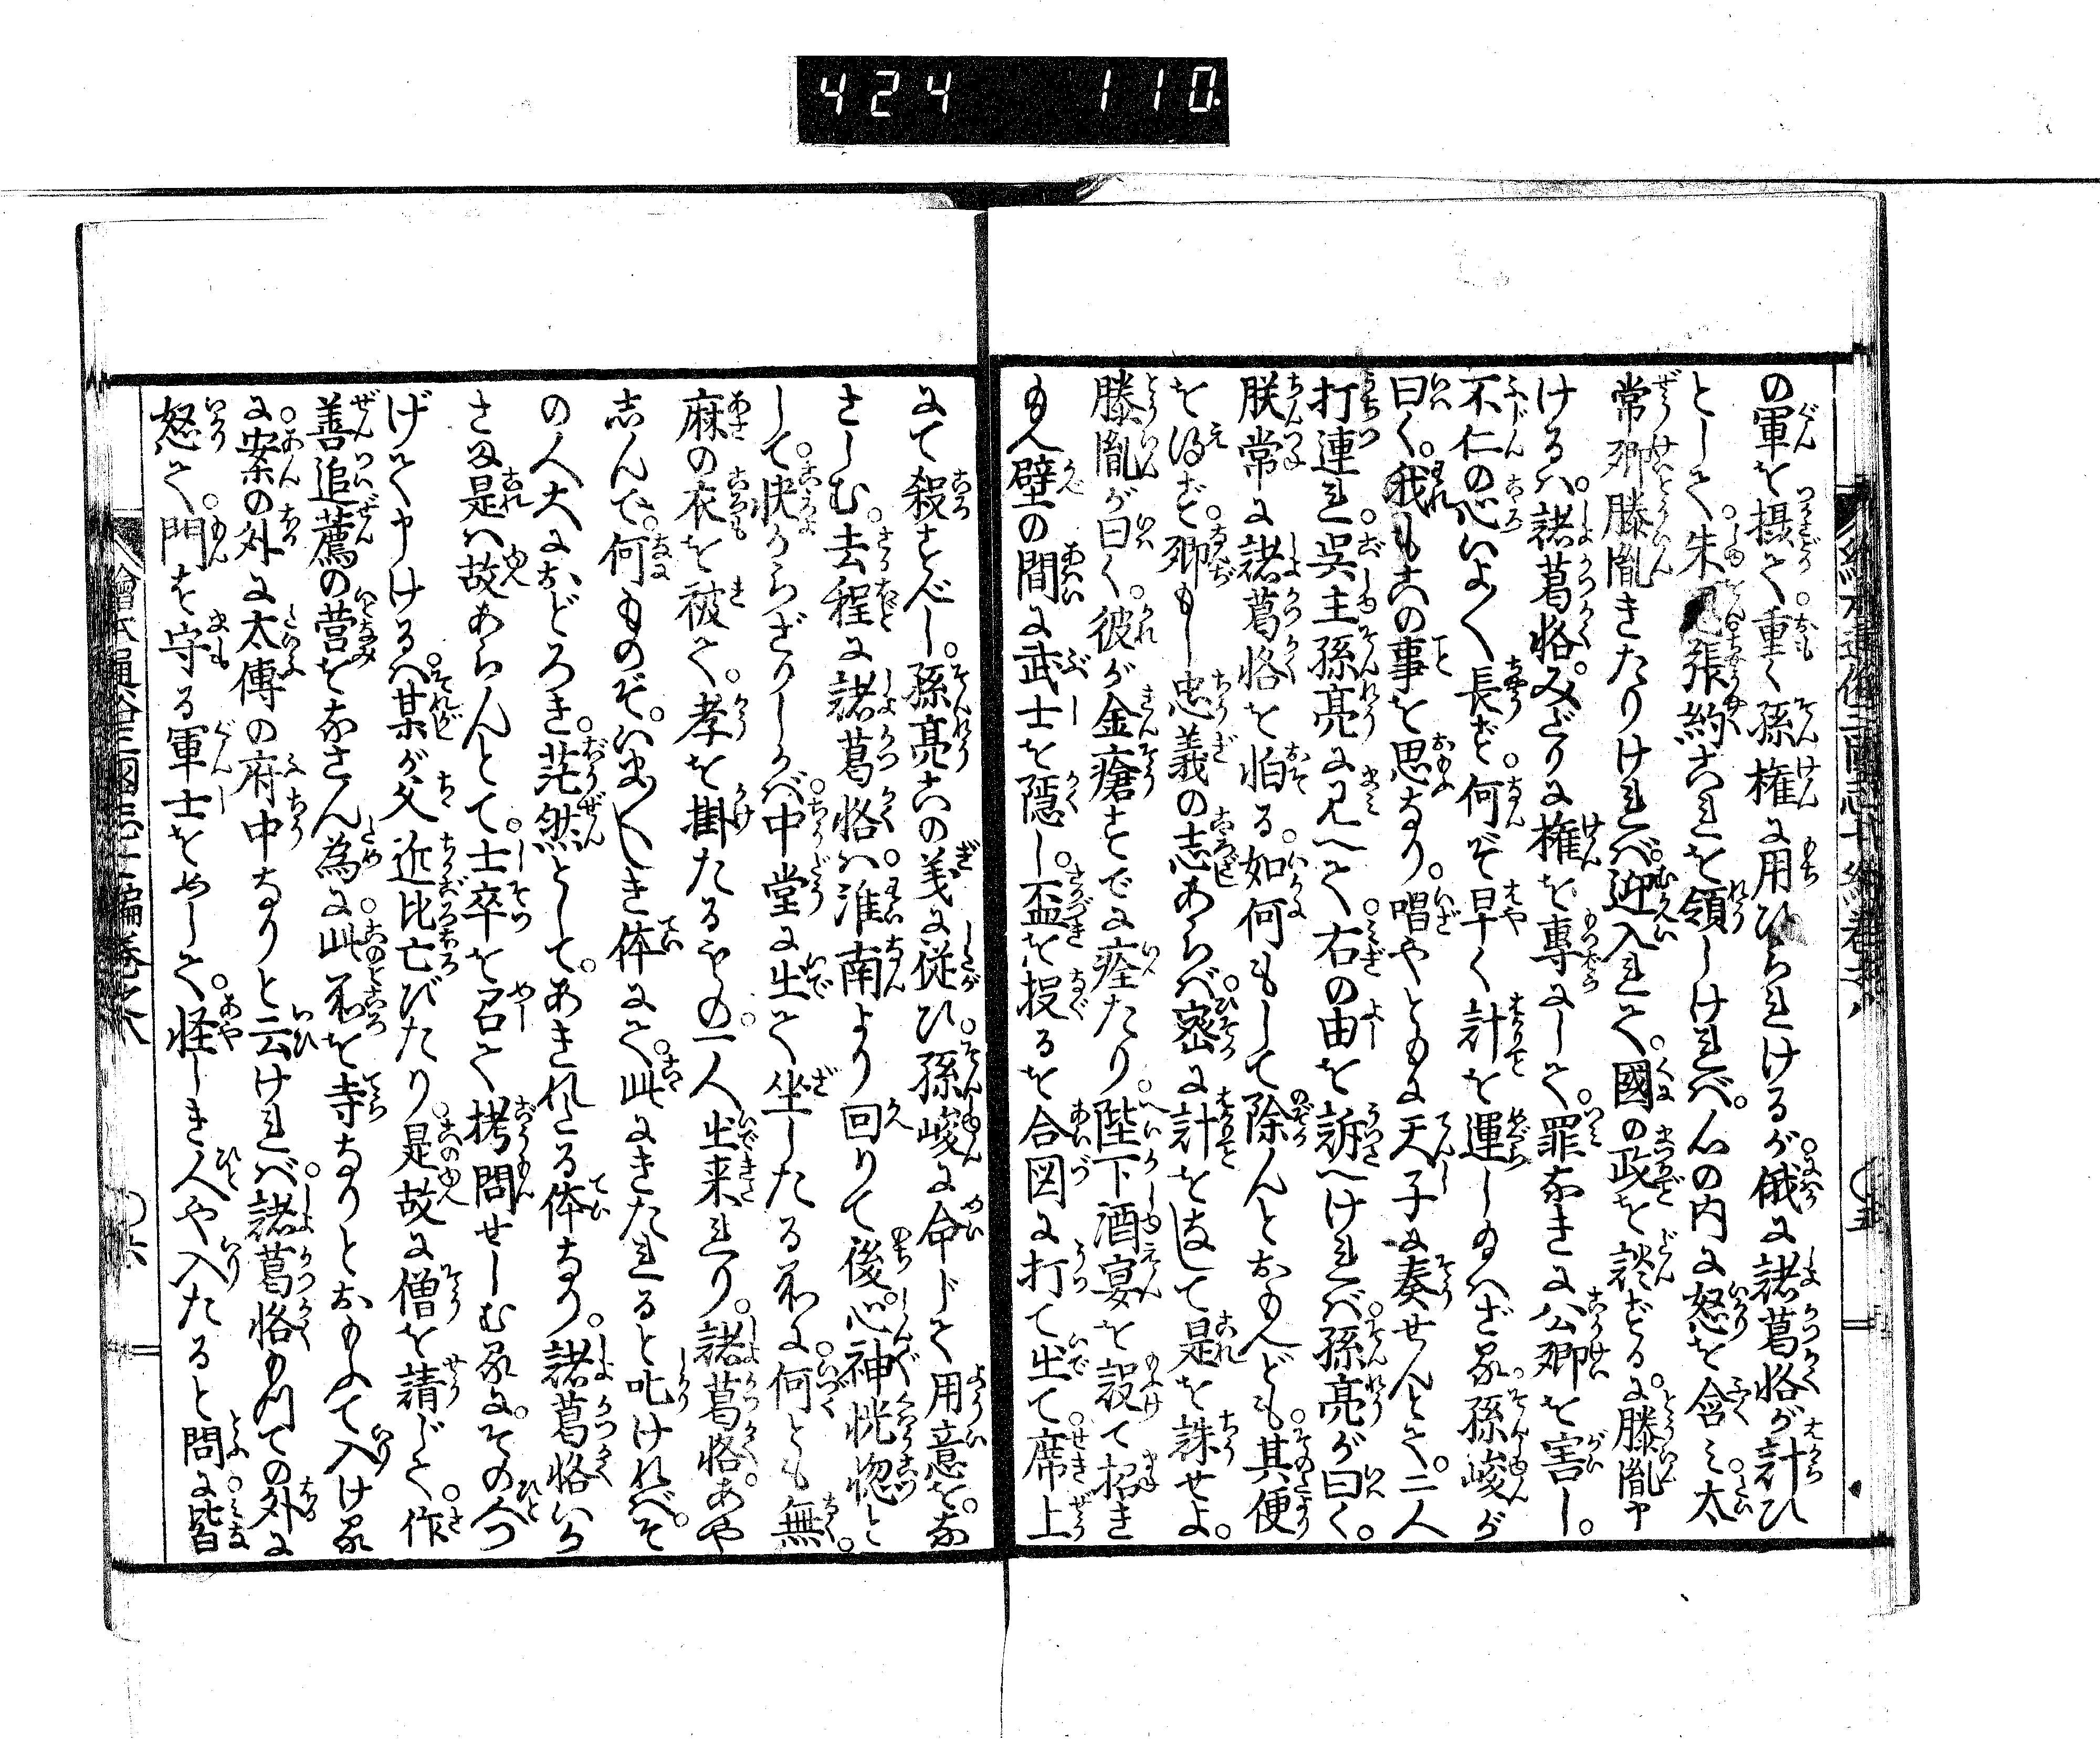 424 110
の軍を摂て重く孫権に用ひられけるが俄に諸葛恪が計ひ
として朱恩張約これを領しければ心の内に怒を含み太
常卿滕胤きたりければ迎入れて國の政を談ずるに滕胤申
けるハ諸葛恪みだりに権を専にして罪なきに公卿を害し
不仁の心いよ〱長ず何ぞ早く計を運し給ハざる孫峻が
曰く我もこの事を思なり唱やともに天子に奏せんとて二人
打連れ呉主孫亮に見へて右の由を訴へければ孫亮が曰く
朕常に諸葛恪を怕る如何もして除んとおもへども其便
を得ず卿もし忠義の志あらば密に計をなして是を誅せよ
滕胤が曰く彼が金瘡すでに痊たり陛下酒宴を設て招き
給へ壁の間に武士を隠し盃を投るを合図に打て出て席上
にて殺すべし孫亮この義に従ひ孫峻に命じて用意をな
さしむ去程に諸葛恪ハ淮南より回りて後心神恍惚と
して快からざりしが中堂に出て坐したる所に何とも無
麻の衣を被て孝を掛たるもの一人出来れり諸葛恪あや
しんで何ものぞいま〱しき体にて此にきたれると叱ければそ
の人大におどろき茫然としてあきれたる体なり諸葛恪いか
さま是ハ故あらんとて士卒を召て拷問せしむる にその人つ
げて申けるハ某が父近比亡びたり是故に僧を請じて作
善追薦の営をなさん為に此所を寺なりとおもふて入ける
に案の外に太傅の府中なりと云ければ諸葛恪もつての外に
怒て門を守る軍士をめして怪しき人や入たると問に皆
繪本通俗三國志七編巻之六